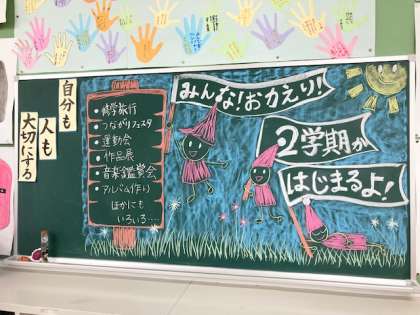 自分も
人も
大切にする
みんな!おかえり!
2学期が
はじまるよ!
•修学旅行
•つながりフェスタ
•運動会
•作品展
•音楽鑑賞会
•アルバム作り
ほかにも
いろいろ…